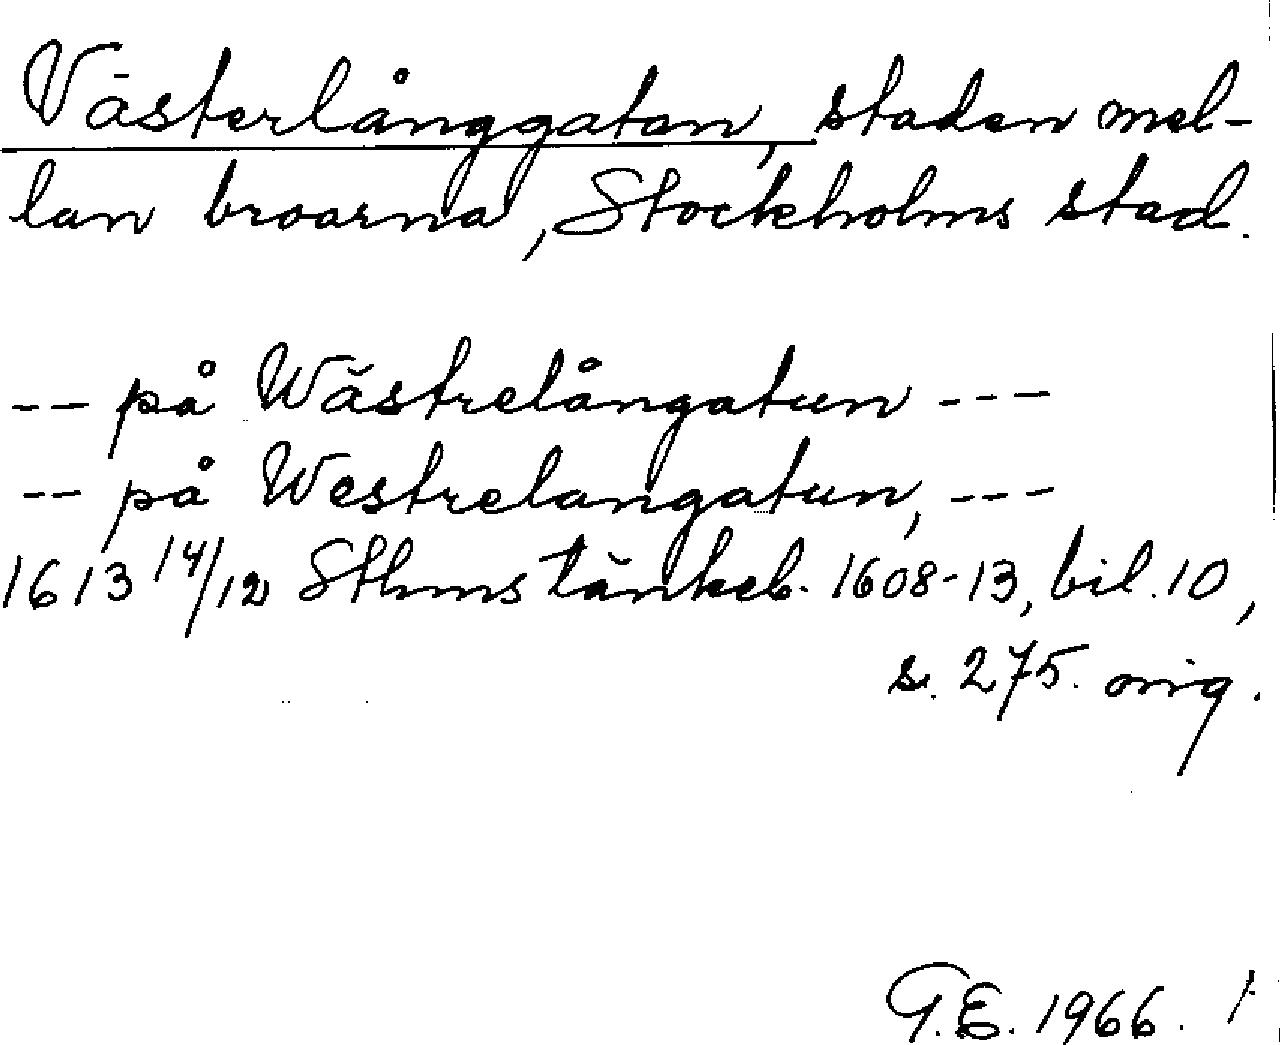 Västerlånggatan, staden mel-
lan broarna, Stockholms stad.
-- på Wästrelångatun ---
-- på Westrelangatun, ---
1613 14/12 Sthms tänkeb. 1608-13, bil. 10,
s. 275. orig.
G.E. 1966.